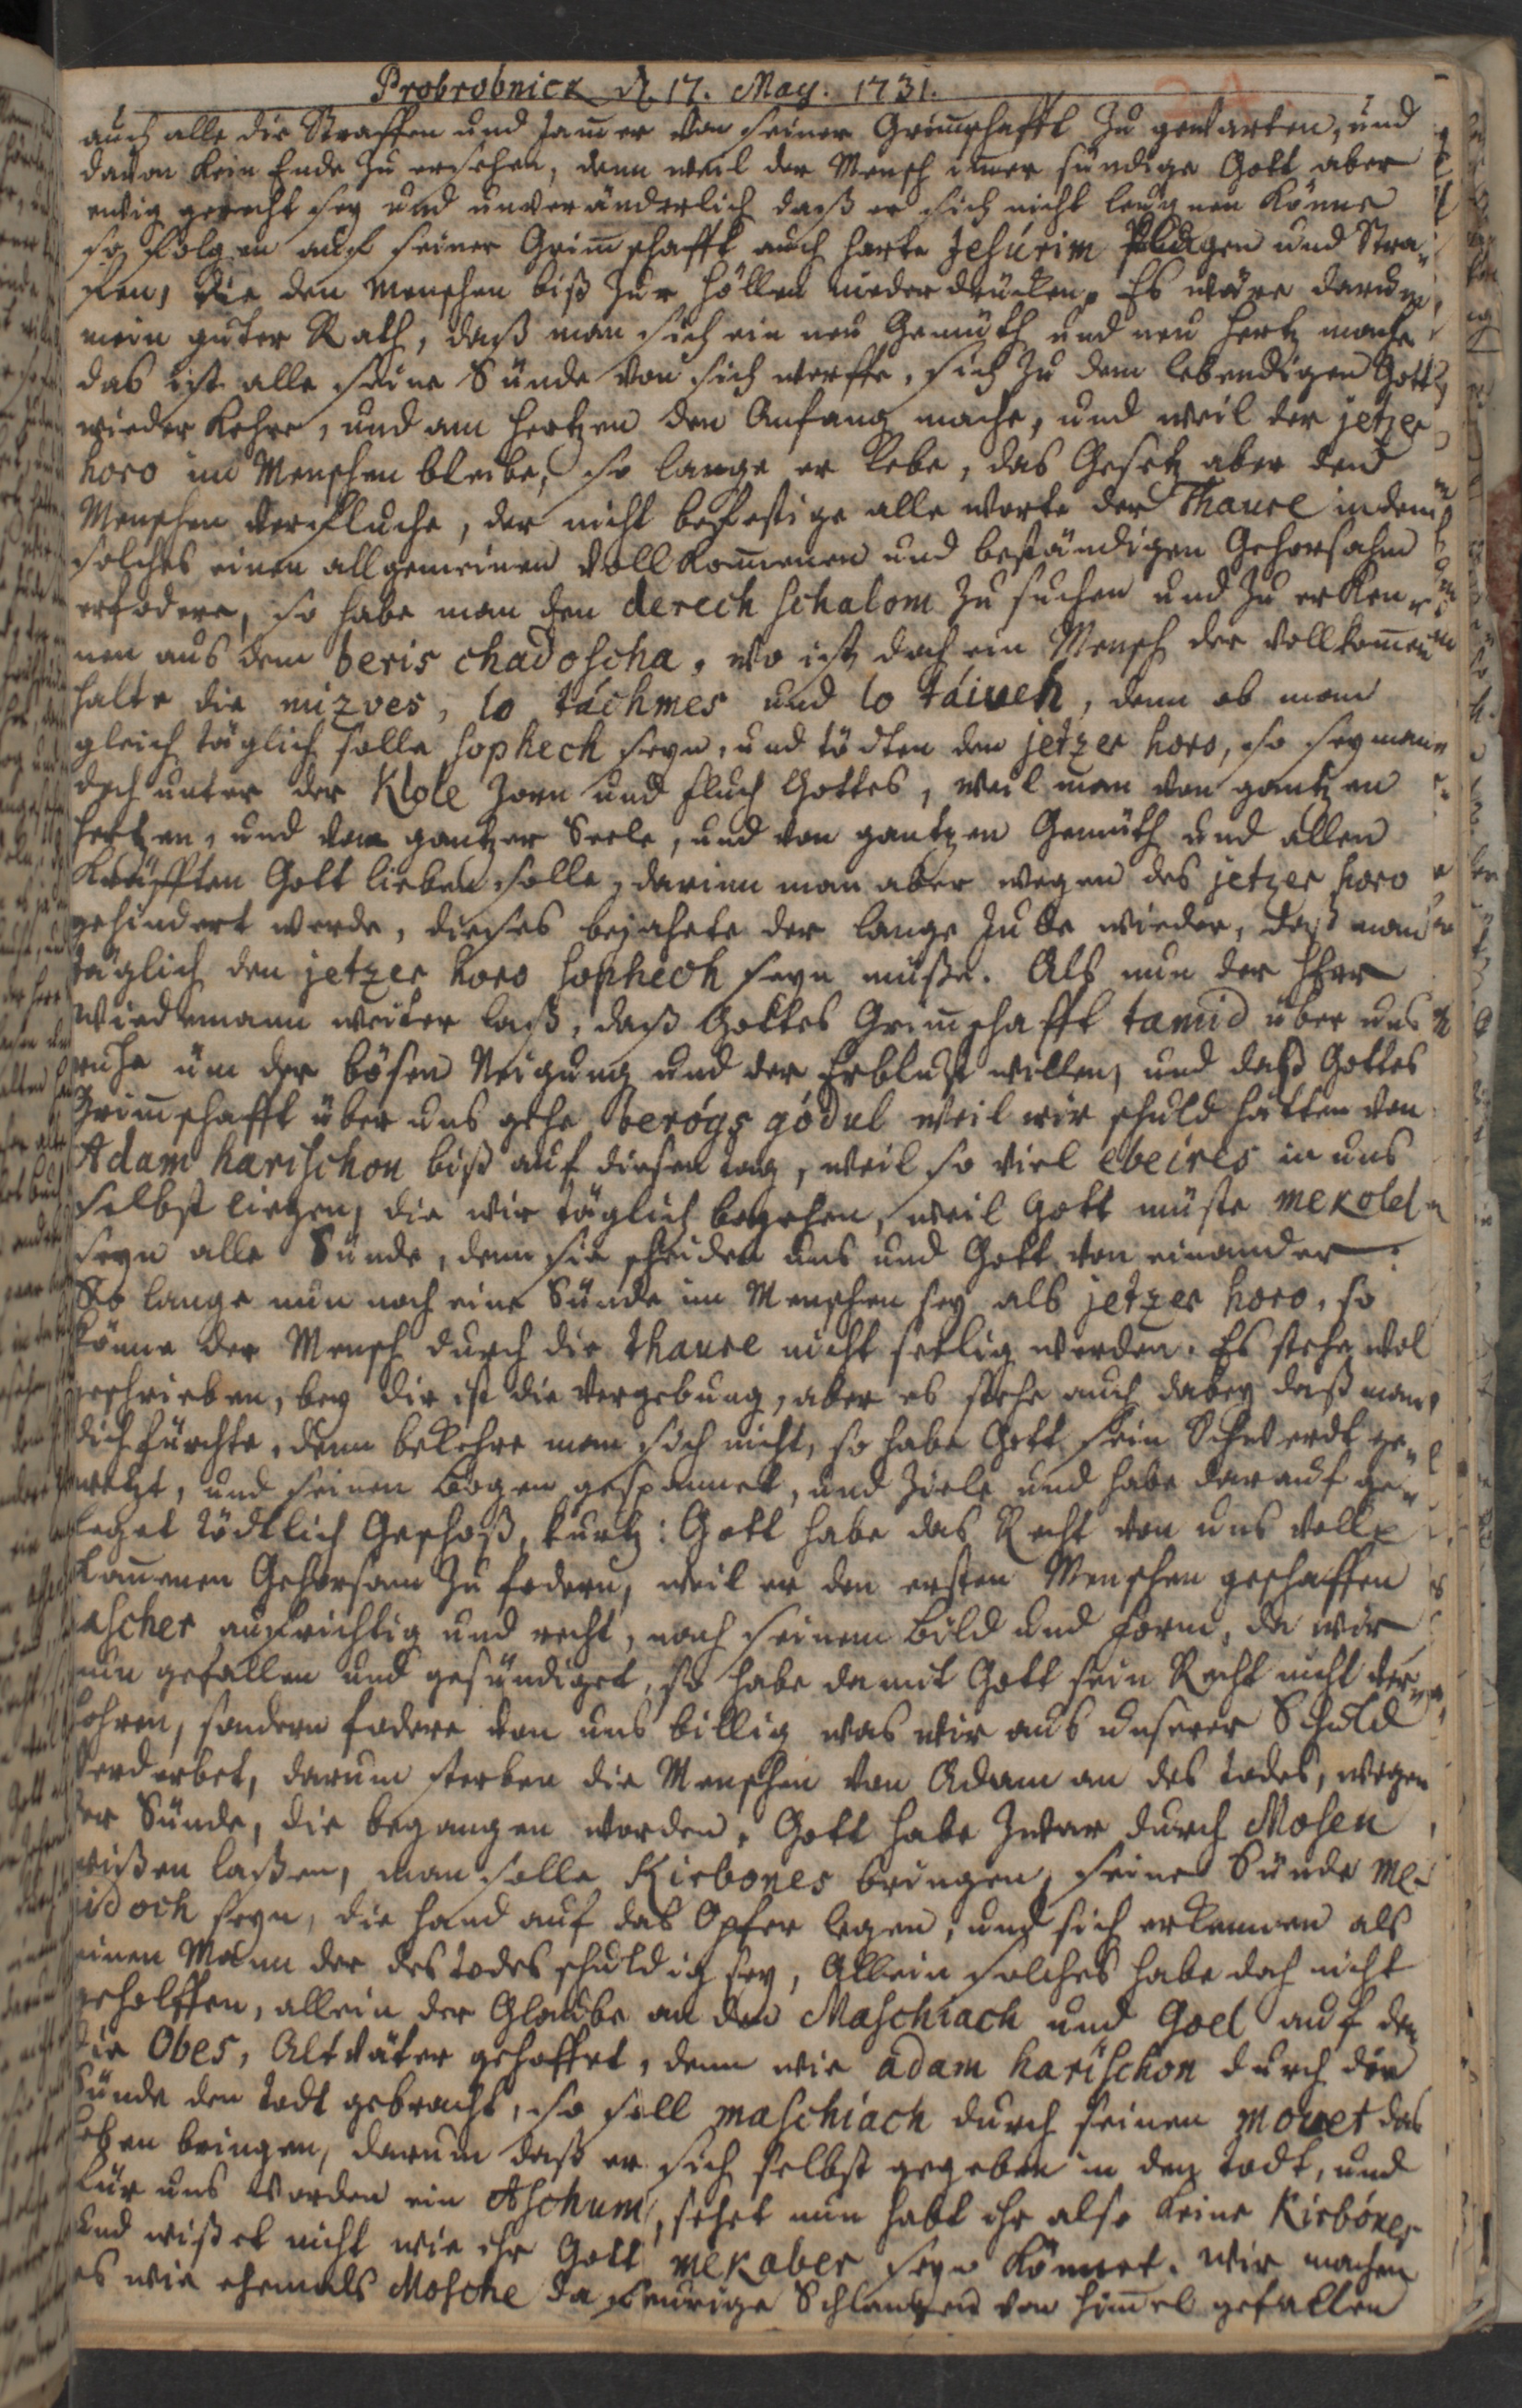 Probrobnick d. 17. May. 1731.
auch alle die Straffen und Jam̄er von seiner Grim̄schafft zu gewarten, und
davon kein Ende zu ersehen, denn weil der Mensch im̄er sündige Gott aber
ewig gerecht sey und unveränderlich daß er sich nicht leugnen könne
so folgen auf seiner Grim̄schafft auch harte Jesúrim Plagen und Stra-
fen, die den Menschen biß zur Höllen niederdrücken. Es wäre darum
mein guter Rath, daß man sich ein neu Gemüth und neu Hertz mache
das ist alle seine Sünde von sich werffe, sich zu dem lebendigen Gott
wieder kehre, und am Hertzen den Anfang mache, und weil der jetzer
horo im Menschen bleibe, so lange er lebe, das Gesetz aber den
Menschen verfluche, der nicht befestige alle Worte der Thaure indem
solches einen allgemeinen vollkom̄enen und beständigen Gehorsahm
erfodere, so habe man den derech schalom zu suchen und zu erken-
nen aus dem beris chadoscha, wo ist doch ein Mensch der vollkom̄en
halte die mizves, lo táchmes und lo táiveh, denn ob man
gleich täglich solle sophech seyn, und tödten den jetzer horo, so sey man
doch unter der Klole Zorn und Fluch Gottes, weil man von gantzen
Hertzen, und von gantzer Seele, und von gantzen Gemüth und allen
Kräfften Gott lieben solle, darinn man aber wegen des jetzer horo
gehindert werde, dieses bejahete der lange Jude wieder, daß man
täglich den jetzer horo sophech seyn müße. Als nun der Herr
Wiedemann weiter laß, daß Gottes Grim̄schafft tamid über uns
ruhe um der bösen Neigung und der Erblust willen, und daß Gottes
Grim̄schafft über uns gehe berógs gódul weil wir schuld hätten von
Adam harischon biß auf diesen Tag, weil so viel ebeires in uns
selbst liegen, die wir täglich begehen, weil Gott müste mekolel
seyn alle Sünde, denn sie scheiden uns und Gott von einander.
So lange nun noch eine Sünde im Menschen sey als jetzer horo, so
könne der Mensch durch die thaure nicht seelig werden. Es stehe wol
geschrieben, bey dir ist die Vergebung, aber es stehe auch dabey daß man
dich fürchte, denn bekehre man sich nicht, so habe Gott sein Schwerdt ge-
wetzt, und seinen Bogen gespannet, und ziele und habe darauf ge-
leget tödtlich Geschoß, kurtz: Gott habe das Recht von uns voll-
kom̄enen Gehorsam zu fodern, weil er den ersten Menschen geschaffen
jascher aufrichtig und recht, nach seinem Bild und Form, da wir
nun gefallen und gesündiget, so habe damit Gott sein Recht nicht ver-
lohren, sondern fodere von uns billig was wir aus unserer Schuld
verderbet, darum sterben die Menschen von Adam an des Todes, wegen
der Sünde, die begangen worden. Gott habe zwar durch Mosen
wißen laßen, man solle Kirbones bringen, seine Sünde me-
vidoch seyn, die Hand auf das Opfer legen, und sich erkennen als
einen Mann der des Todes schuldig sey, Allein solches habe doch nicht
geholffen, allein der Glaube an den Maschiach und Goel auf den
die Obes, Altväter gehoffet, denn wie adam harischon durch die
Sünde den Todt gebracht, so soll maschiach durch seinen mouet das
Leben bringen, darum daß er sich selbst gegeben in den Todt, und
für uns worden ein Aschum, sehet nun habt ihr also keine Kirbónes
und wißet nicht wie ihr Gott mekaber seyn könnet. Wir machen
es wie ehemals Mosche da feurige Schlangen von Him̄el gefallen